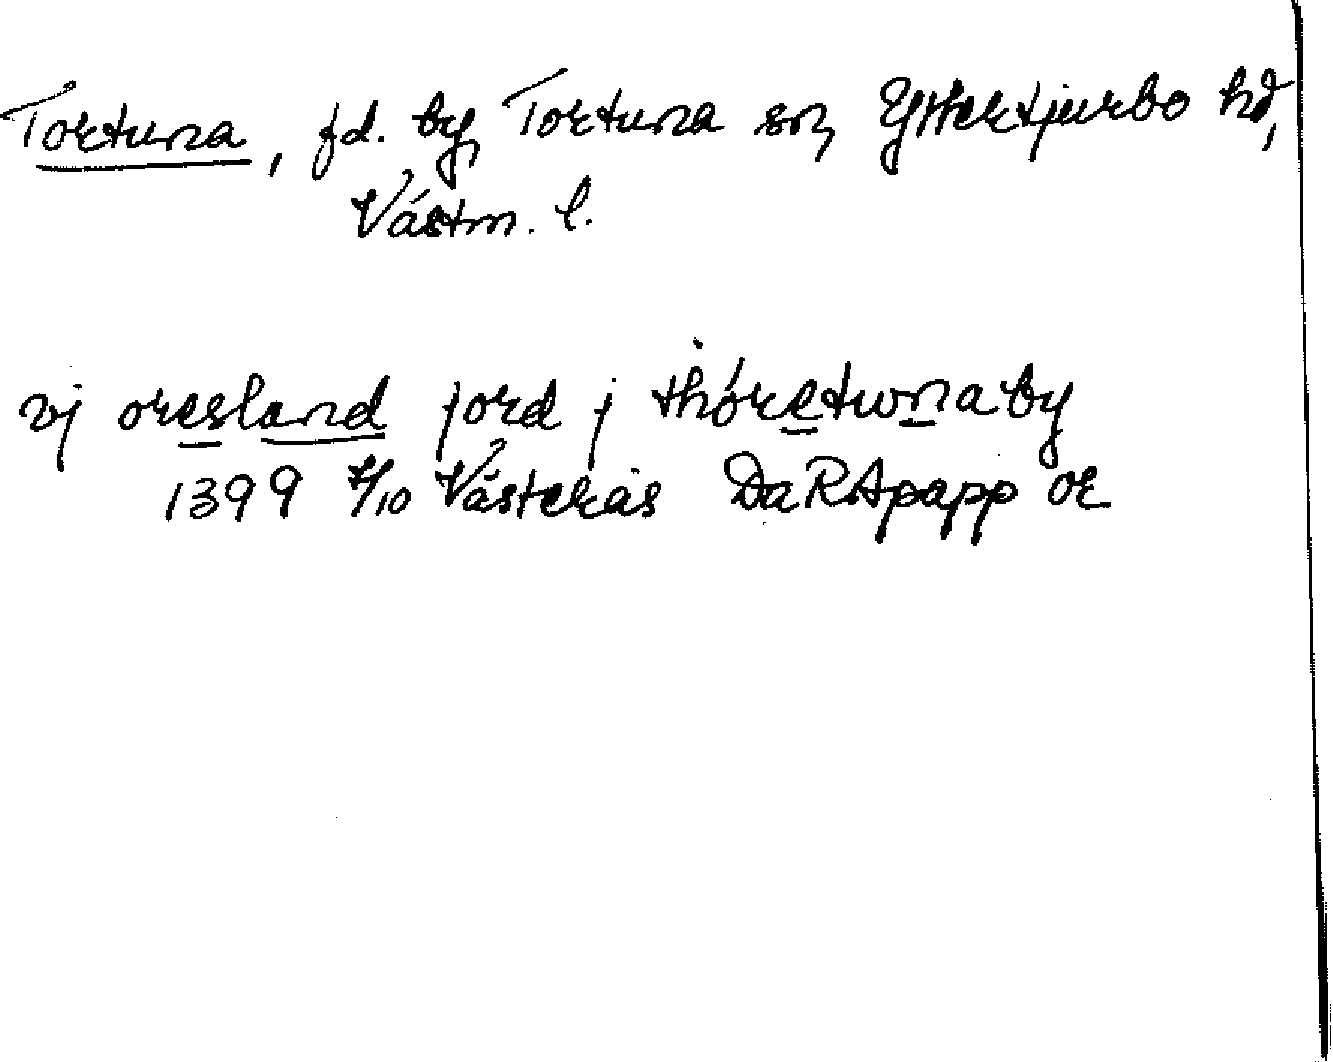 Tortuna, fd. by, Tortuna sn, Yttertjurbo hd,
Västm. l.
vj oresland jord j thóretwnaby
1399 4/10 Västerås Da RApapp or